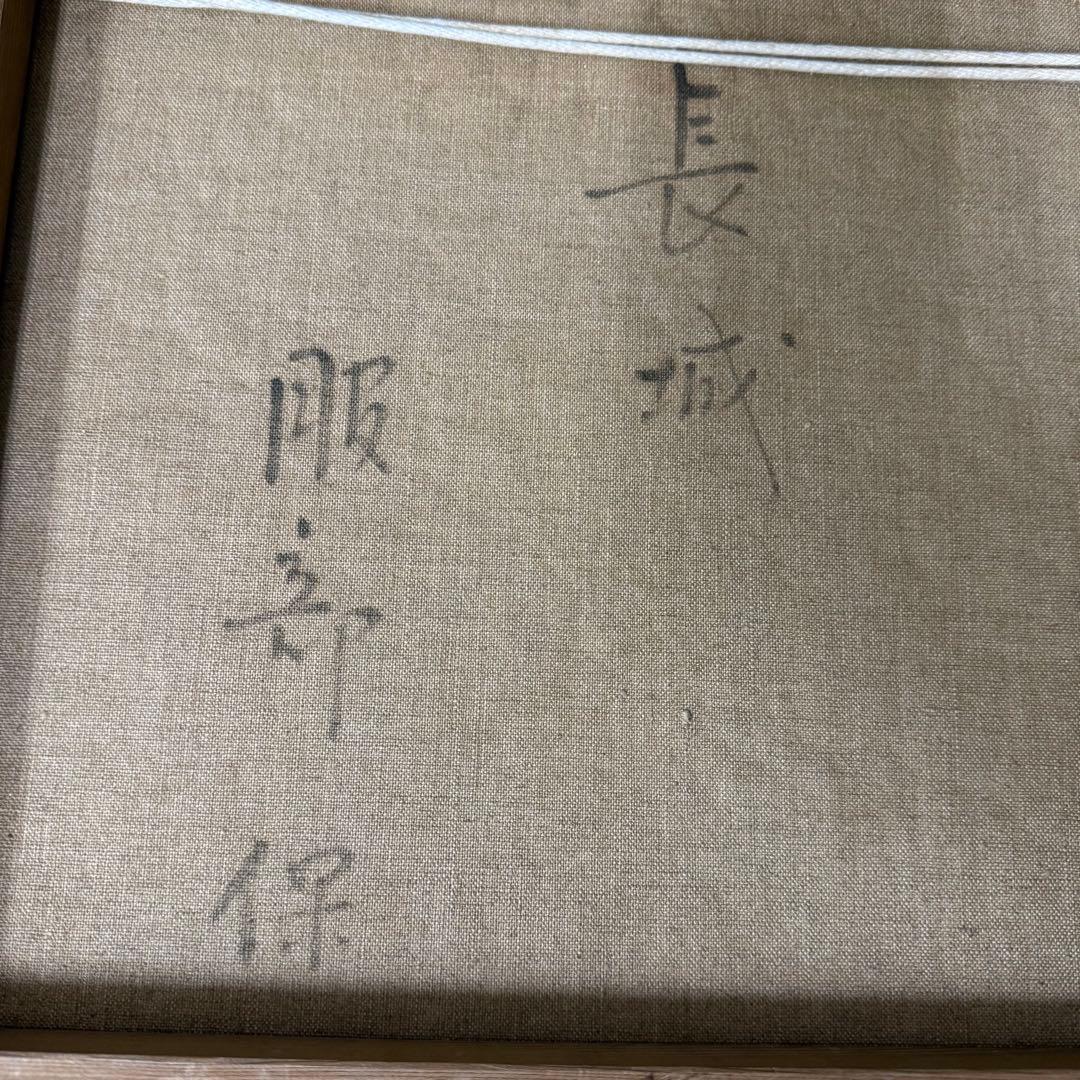 長城
服部 保